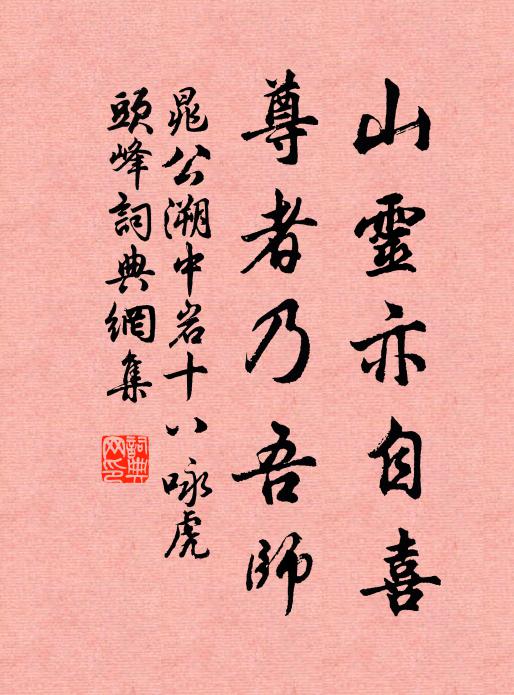 山靈亦自喜
尊者乃吾師
晁公溯中岩十八咏虎
頭峰詞典網集
詞典
网印